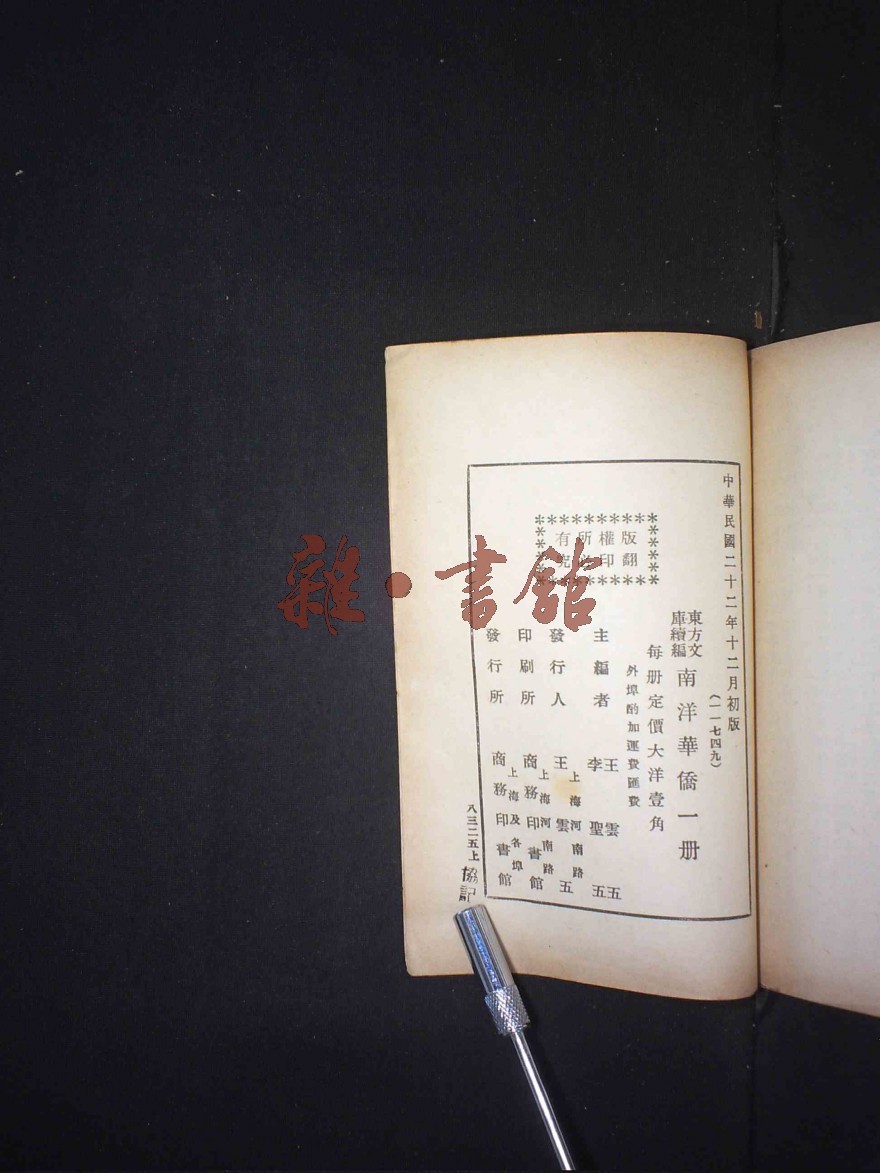 中華民國二十二年十二月初版
(一一七四九)
東方文
庫續編
南洋華僑一册
每册定價大洋壹角
外埠酌加運費匯費
版權所有
翻印必究
主編者
王雲五
李聖五
發行人
上海河南路
王雲五
印刷所
上海河南路
商務印書館
發行所
上海及各埠
商務印書館
八三二五上
協記
雜·書館